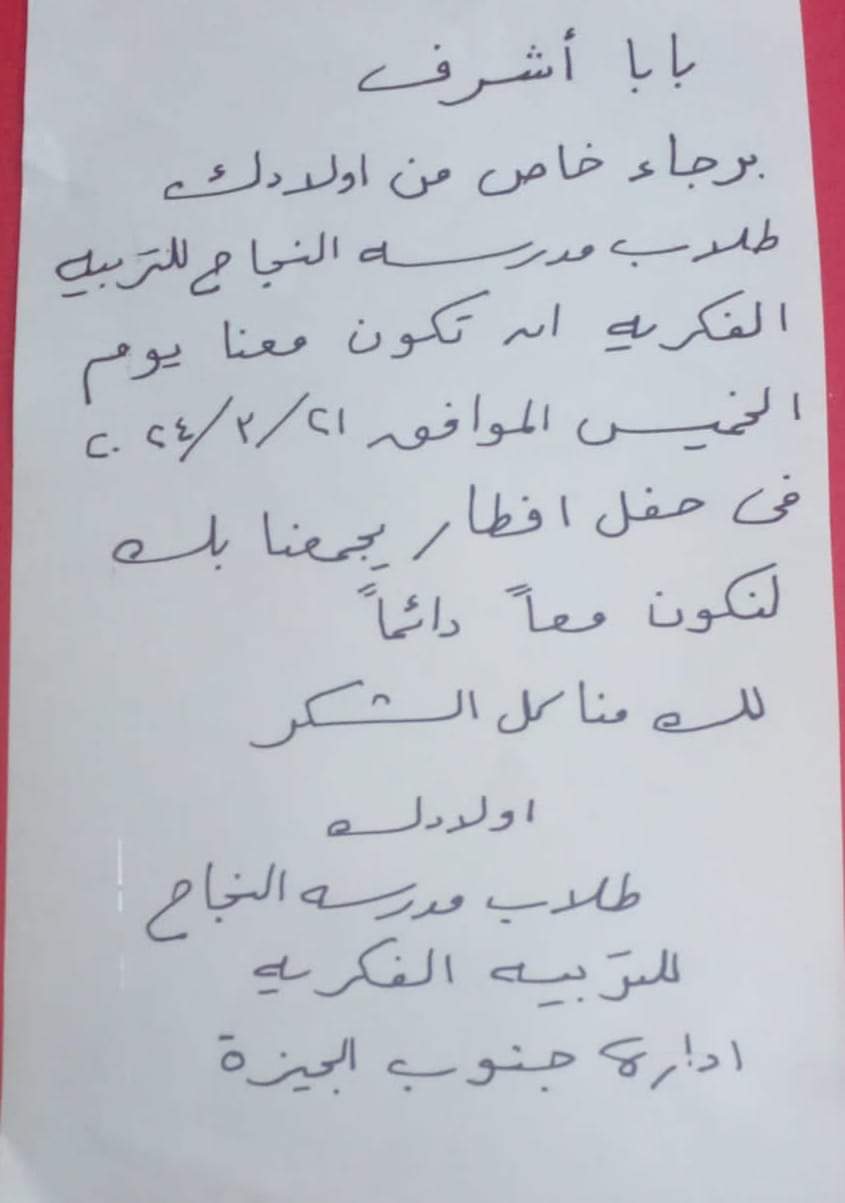 بابا أشرف
برجاء خاص من اولادك
طلاب مدرسه النجاح للتربيه
الفكريه ان تكون معنا يوم
الخميس الموافق ٢٠٢٤/٣/٢١
فى حفل افطار يجمعنا بك
لنكون معاً دائماً
لك منا كل الشكر
اولادك
طلاب مدرسه النجاح
للتربيه الفكريه
ادارة جنوب الجيزة